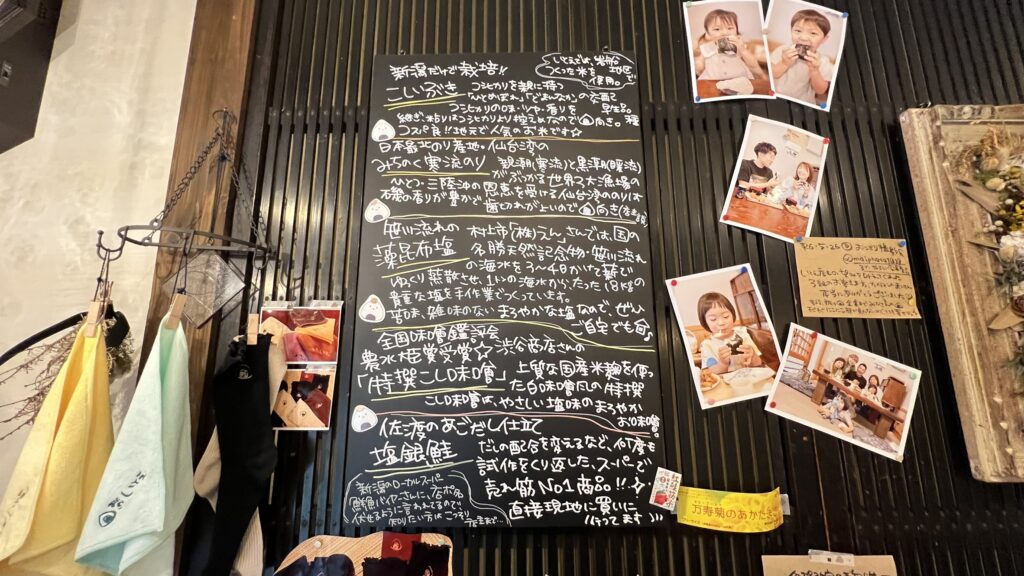 新潟だけで栽培!!
こしいぶき
コシヒカリを親に持つ
「ひとめぼれ」と「どまんなか」の交配
コシヒカリのおいしさや、香りを
継ぎ、粘りはコシヒカリより控えめなので🍙向き。
コスパ良!!地元で人気のお米です☆
日本最北のり産地。仙台湾の
みちのく寒流のり
親潮(寒流)と黒潮(暖流)
がぶつかる世界3大漁場の
ひとつ・三陸沖の恩恵を受ける仙台湾ののりは
磯の香りが豊かで歯切れがよいので🍙向き
笹川流れの
藻昆布塩
村上市(株)さんでは、国の
名勝天然記念物・笹川流れ
の海水を3〜4日かけて
ゆっくり蒸散させ、1tの海水からたった18kgの
貴重な塩を手作業でつくっています。
苦味、雑味のないまろやかな塩なので、ぜひ
ご自宅でも♪
全国味噌鑑評会
農水大臣賞受賞☆渋谷商店さんの
「特撰こし味噌」
上質な国産米麹を使っ
た白味噌風の特撰
こし味噌は、やさしい塩味のまろやか
お味噌。
佐渡のあごだし仕立て
塩銀鮭
だしの配合を変えるなど、何度も
試作をくり返した、スーパーで
売れ筋No1商品!!☆
直接現地に買いに
行ってます)))
新潟のローカルスーパー
鮮魚バイヤーさんに、店名
伏せるように言われてるので
知りたい方はこっそり
万寿菊のあかたま